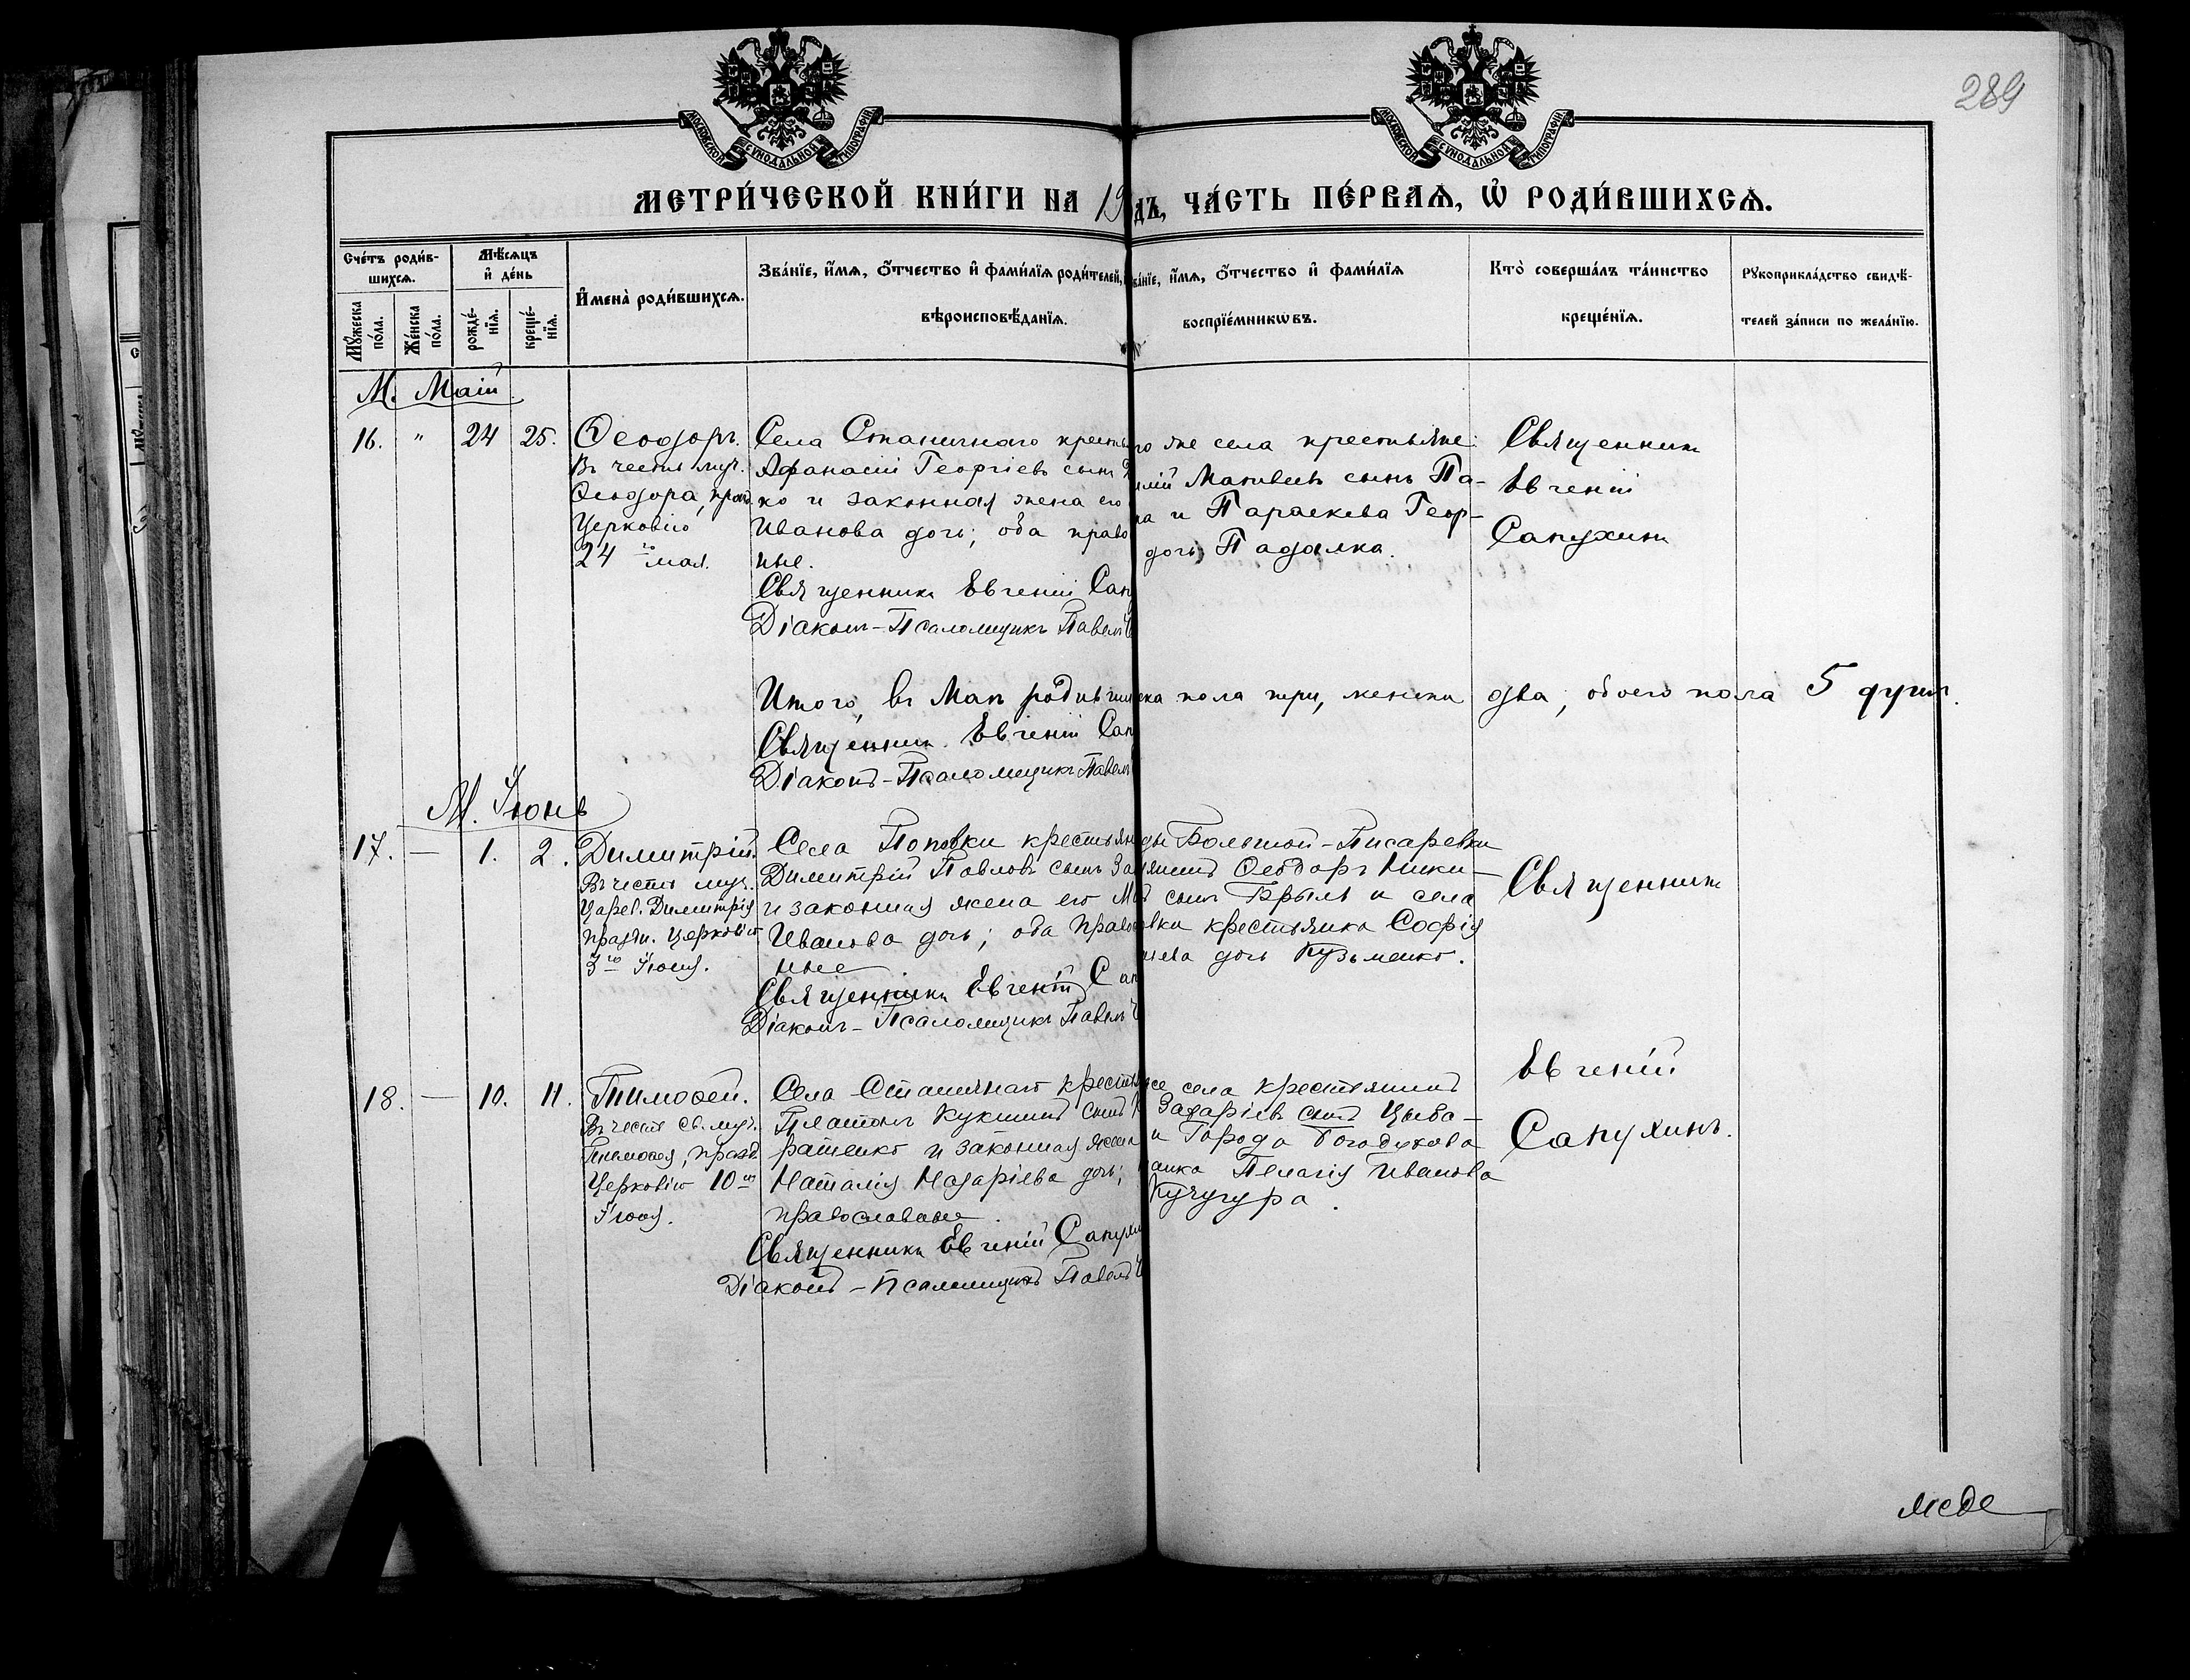 289
МОСКОВСКОЙ СѴНОДАЛЬНОЙ ТИПОГРАФІИ
МОСКОВСКОЙ СѴНОДАЛЬНОЙ ТИПОГРАФІИ
МЕТРИ́ЧЕСКОЙ КНИ́ГИ НА 19 ДЪ, ЧА́СТЬ ПЕ́РВАѦ, Ѡ҆ РОДИ́ВШИХСѦ.
Сче́тъ роди́в-
шихсѧ.
Мꙋ́жеска по́ла.
Же́нска по́ла.
Мѣ́сѧцъ и҆ де́нь
рожде́-нїѧ.
креще́-нїѧ.
И҆мена̀ роди́вшихсѧ.
Зва́нїе, и҆́мѧ, ѻ҆́тчество и҆ фами́лїѧ роди́телей,
вѣроисповѣ́данїѧ.
ва́нїе, и҆́мѧ, ѻ҆́тчество и҆ фами́лїѧ
воспрїе́мникѡвъ.
Кто̀ соверша́лъ та́инство
креще́нїѧ.
Рꙋкоприкла́дство свидѣ́-
телей за́писи по жела́нїю.
М. Маій
16. " 24 25.
Ѳеодоръ.
Въ честь муч.
Ѳеодора, празд.
Церковію
24 го мая.
Села Станичнаго кресть
Афанасій Георгіевъ сынъ
ко и законная жена его
Иванова дочь; оба право
ные.
Священникъ Евгеній Сап
Діаконъ-Псаломщикъ Павелъ
го же села крестьяне:
Матвѣевъ сынъ Па-
ка и Параскева Геор-
дочь Падалка.
Священникъ
Евгеній
Сапухинъ
Итого, въ Маѣ родивши
ска пола три, женска два, обоего пола 5 душъ.
Священникъ Евгеній Сап
Діаконъ-Псаломщикъ Павелъ
М. Іюнь
17. — 1. 2.
Димитрій.
Въ честь муч.
Царев. Димитрія
праздн. Церковію
3 го Іюня.
Села Поповки крестьян
Димитрій Павловъ сынъ За
и законная жена его М
Иванова дочь; оба право
ные
Священникъ Евгеній Сап
Діаконъ-Псаломщикъ Павелъ
ды Большой-Писаревки
янинъ Ѳеодоръ Ники-
сынъ Брыль и села
вки крестьянка Софія
дочь Кузьменко.
Священникъ
Евгеній
Сапухинъ.
18. — 10. 11.
Тимоѳей.
Въ честь св. муч.
Тимоѳея, празд.
Церковію 10 го
Іюня.
Села Станичнаго кресть
Платонъ Кукшинъ сынъ
ратенко и законная жена
Наталія Назаріева дочь;
православные.
Священникъ Евгеній Сапухи
Діаконъ-Псаломщикъ Павелъ
же села крестьянинъ
Захаріевъ сынъ Цыба-
и Города Богодухова
анка Пелагія Иванова
Кучугура.